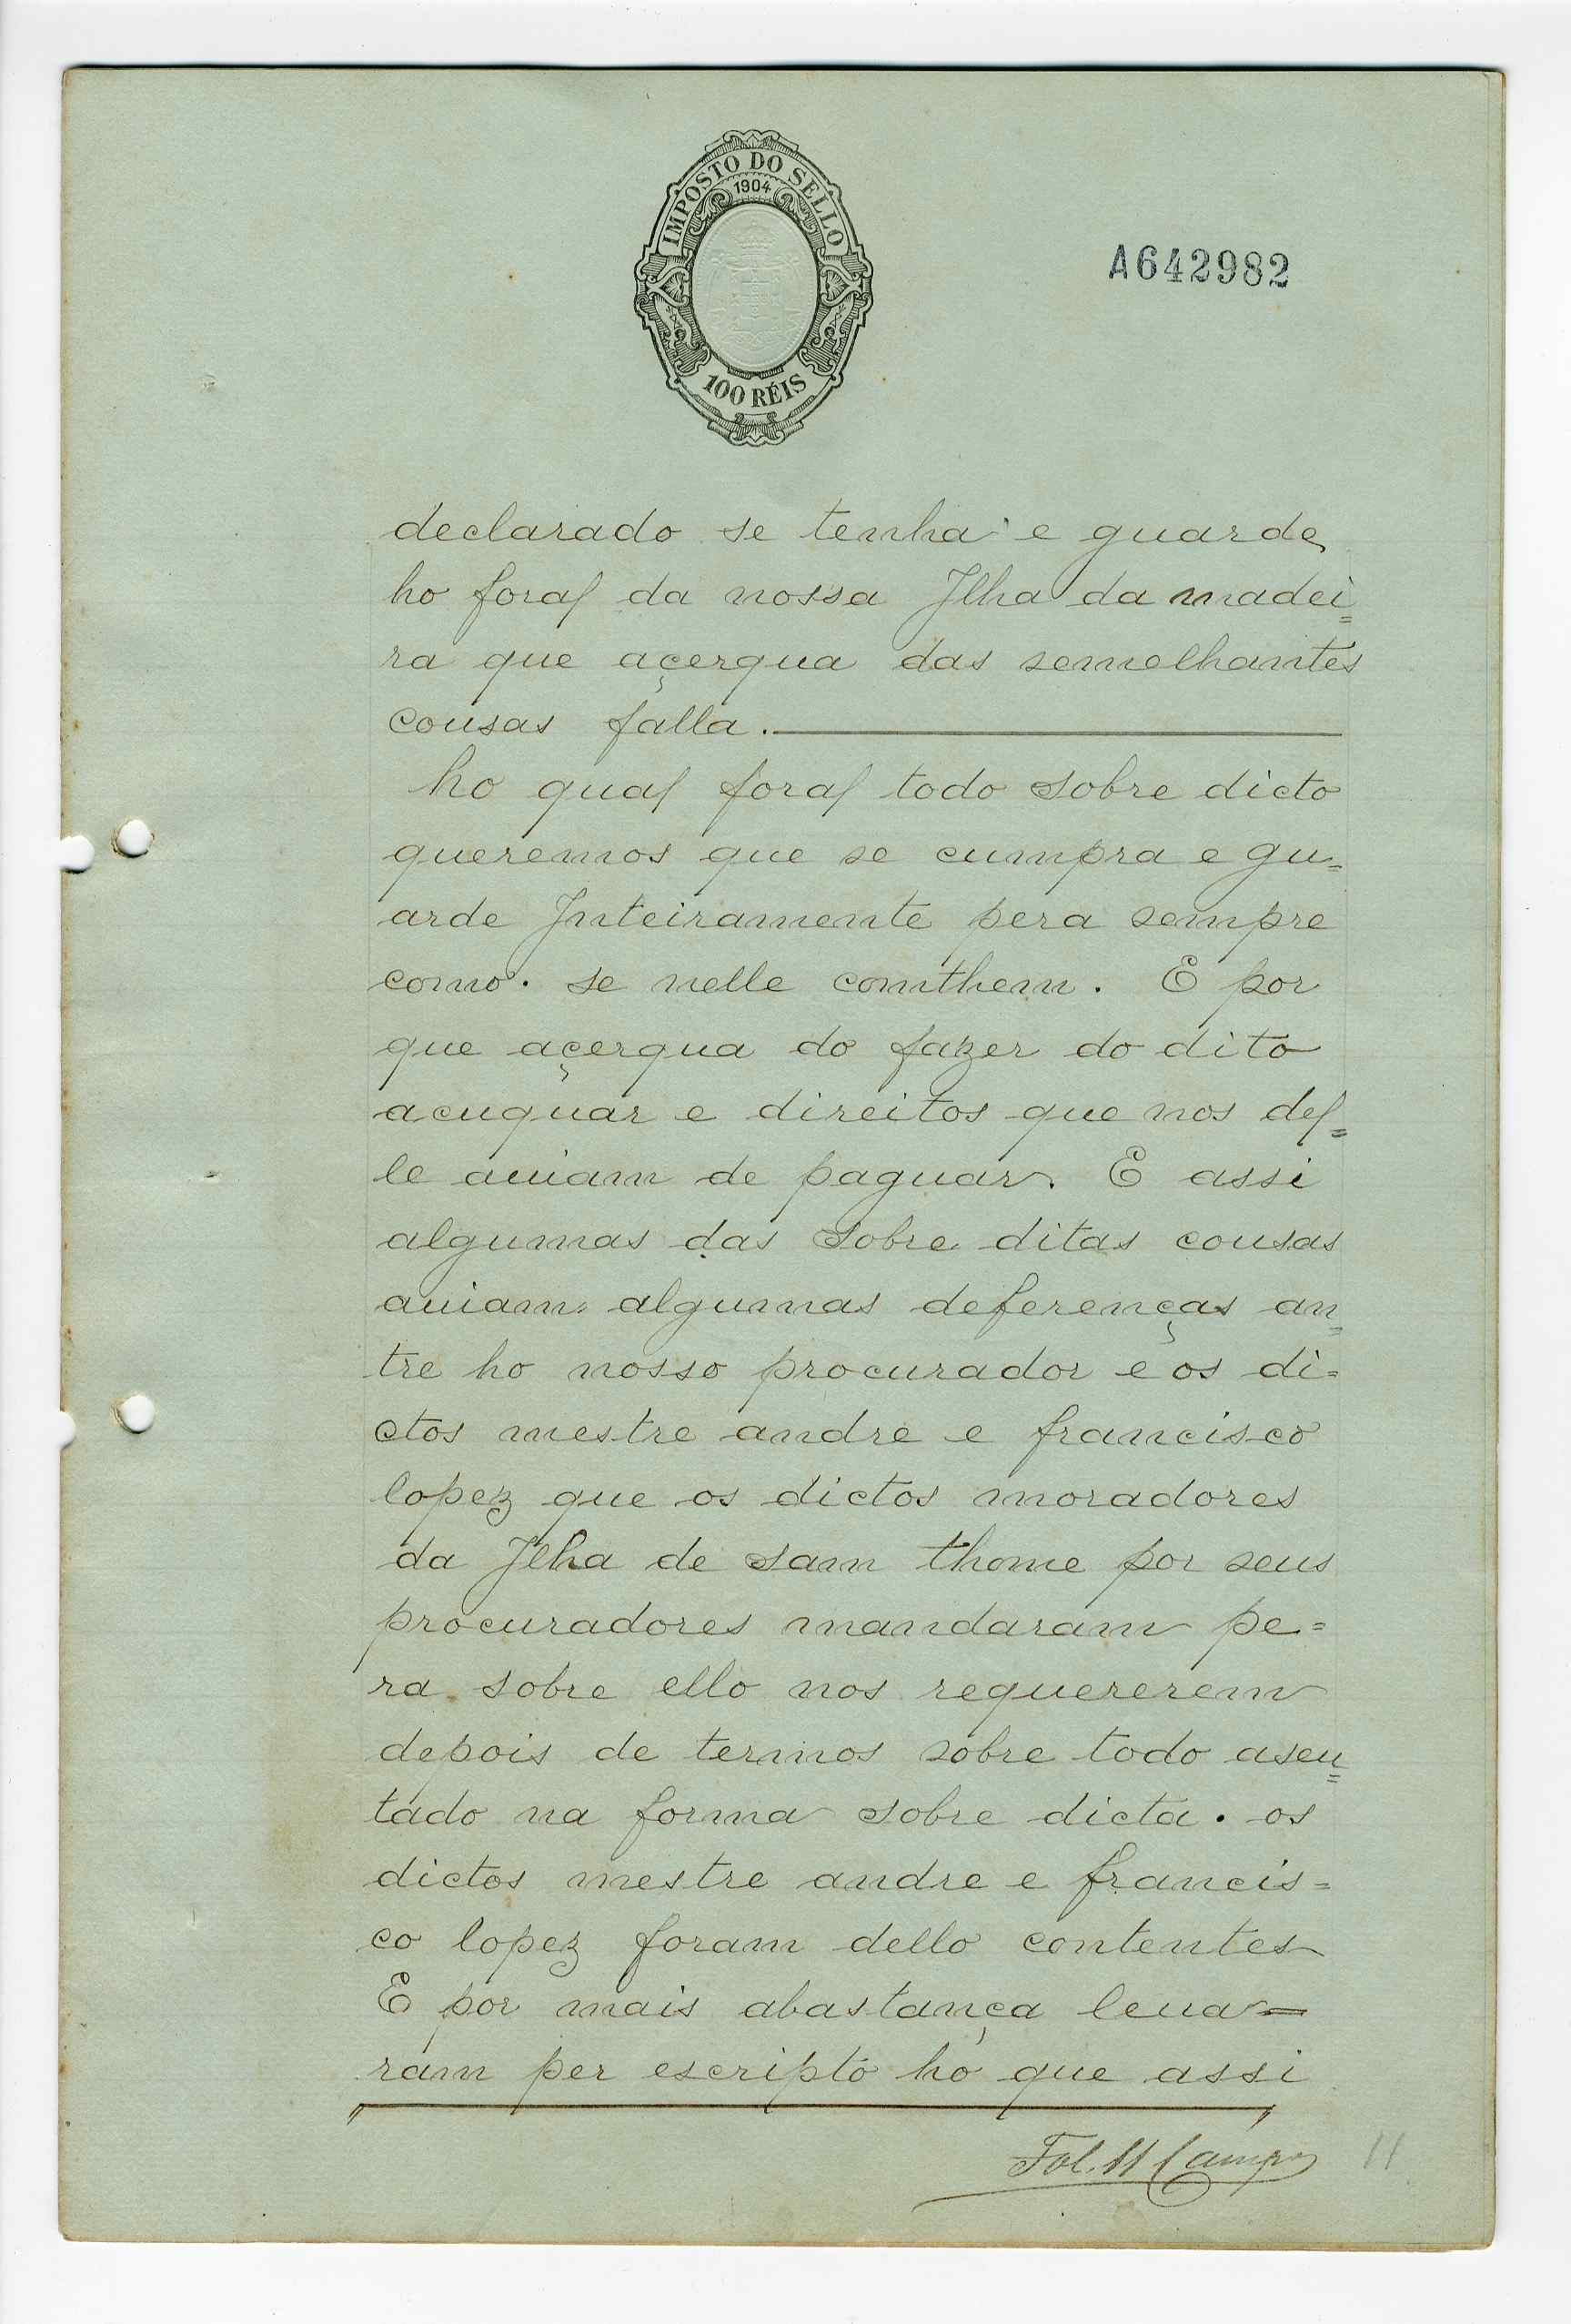 IMPOSTO DO SELLO
1904
100 RÉIS
A642982
declarado se tenha e guarde
ho foral da nossa Jlha da madei=
ra que açerqua das semelhantes
cousas falla.
ho qual foral todo sobre dicto
queremos que se cumpra e gu=
arde Jnteiramente pera sempre
como. se nelle comthem. E por
que açerqua do fazer do dito
acuquar e direitos que nos del=
le auiam de paguar. E assi
algumas das sobre ditas cousas
auiam algumas deferenças an=
tre ho nosso procurador e os di=
ctos mestre andre e francisco
lopez que os dictos moradores
da Jlha de sam thome por seus
procuradores mandaram pe=
ra sobre ello nos requererem
depois de termos sobre todo aseu=
tado na forma sobre dicta. os
dictos mestre andre e francis=
co lopez foram dello contentes
E por mais abastança leua=
ram per escripto ho que assi
Fol. 11 Campos
11